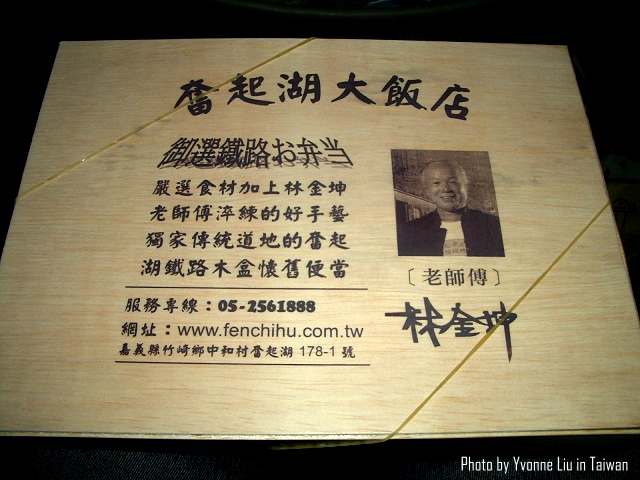 奮起湖大飯店
御選鐵路お弁当
嚴選食材加上林金坤
老師傅淬練的好手藝
獨家傳統道地的奮起
湖鐵路木盒懷舊便當
服務專線：05-2561888
網址：www.fenchihu.com.tw
嘉義縣竹崎鄉中和村奮起湖 178-1 號
〔老師傅〕
林金坤
Photo by Yvonne Liu in Taiwan